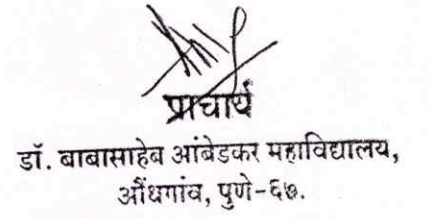 प्राचार्य
डॉ. बाबासाहेब आंबेडकर महाविद्यालय,
औंधगांव, पुणे-६७.